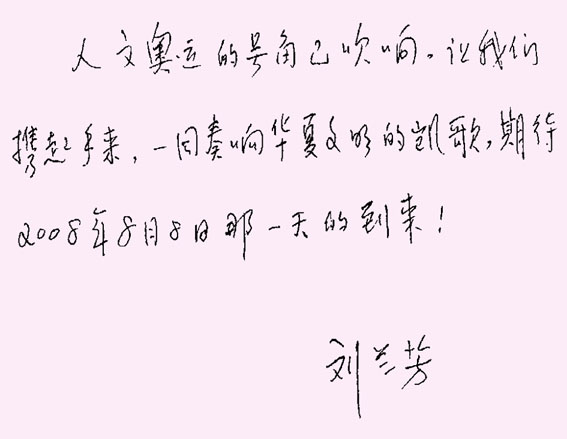 人文奥运的号角已吹响。让我们
携起手来，一同奏响华夏文明的凯歌，期待
2008年8月8日那一天的到来！
刘兰芳